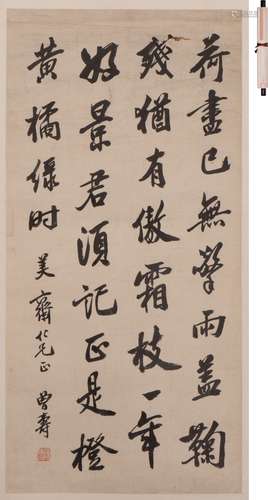 荷盡已無擎雨蓋鞠
殘猶有傲霜枝一年
好景君須記正是橙
黃橘綠时
美齋仁兄正 曾壽